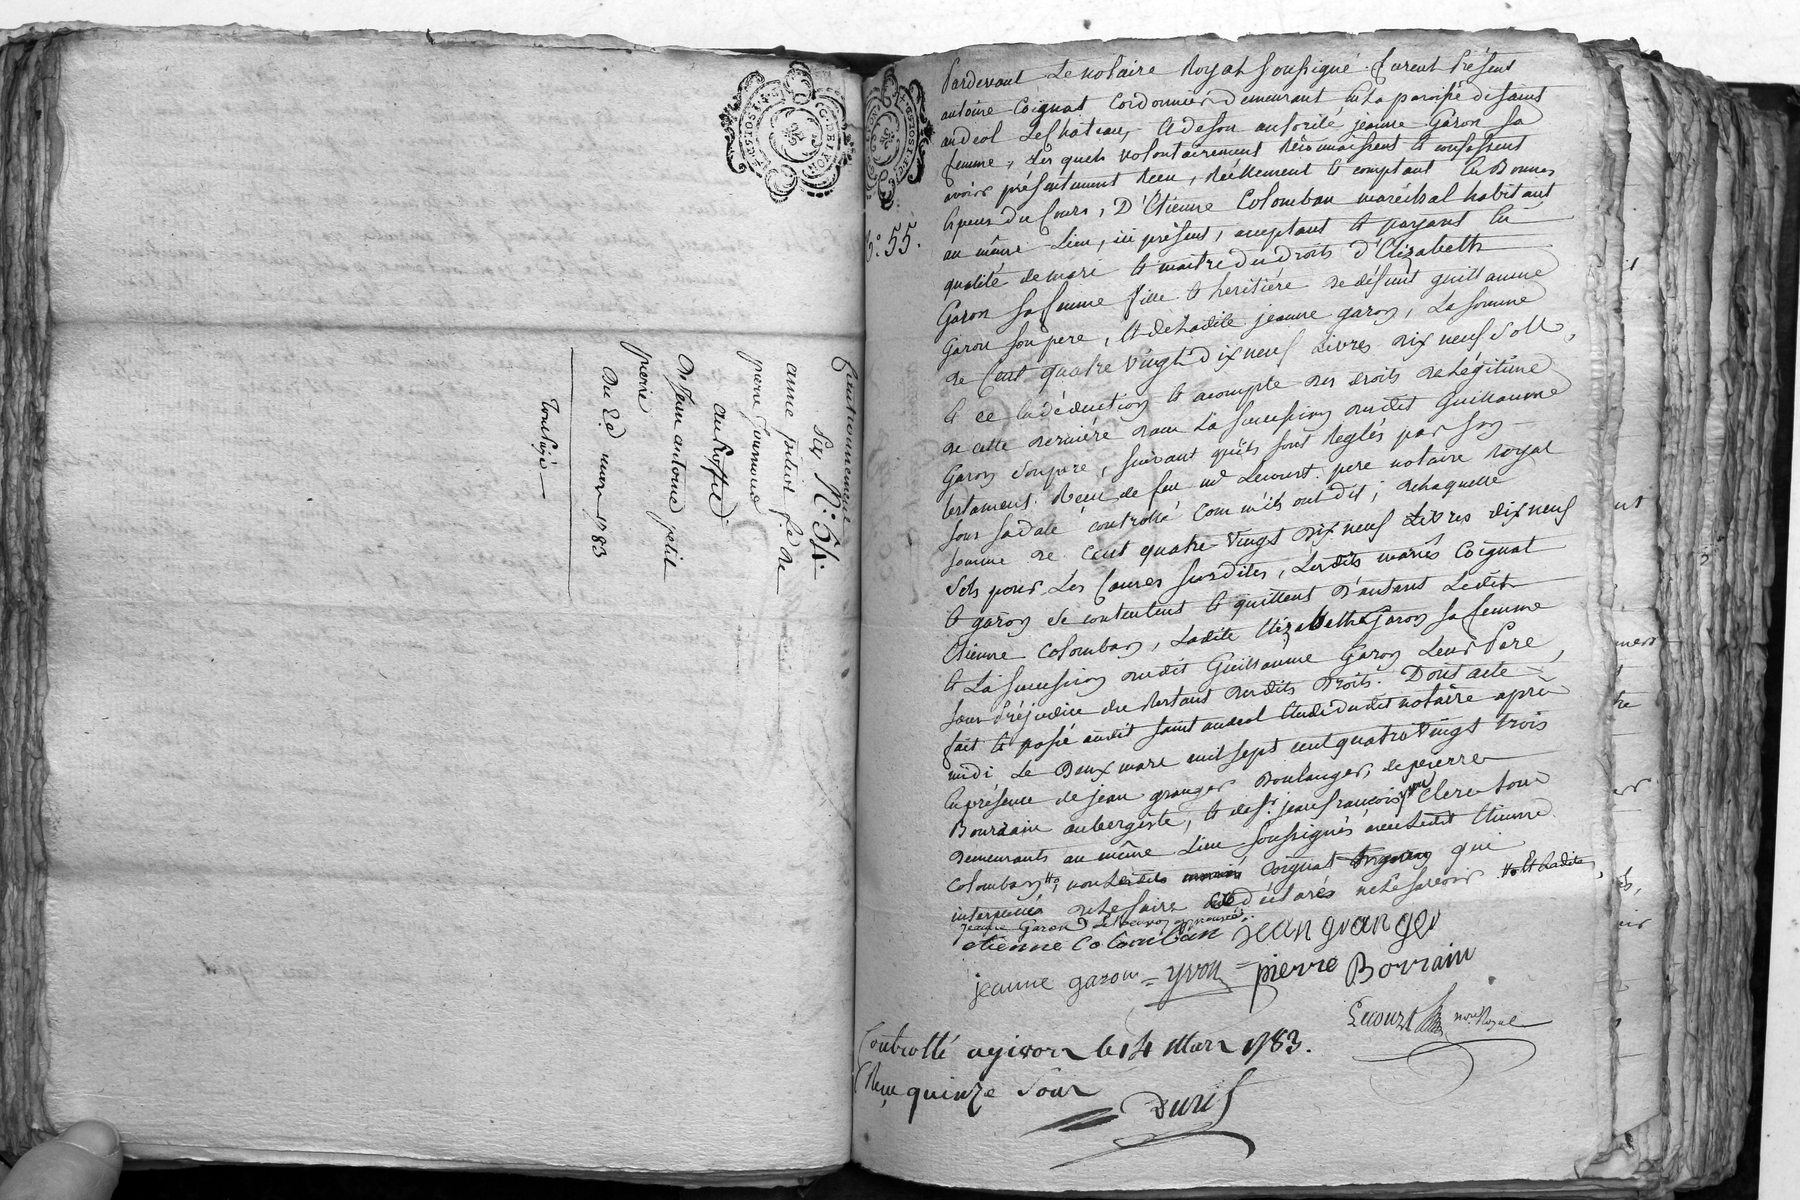 Cautionnement
Sig N.º 54.
anne petiot f.e de
pierre Journoud
au profit
de Jean antoine petit
pierre
Du 2.d mars 1783
G. DE LYON
N.º 55.
Pardevant Le notaire Royal soussigné furent présent
antoine Coignat Cordonnier demeurant en la paroisse de saint
andeol Le Chateau, & de son autorité jeanne Garon sa
femme, Les quels volontairement Reconnaissent & confessent
avoir présentement Reçu, Réellement & comptant en Bonnes
Especes du Cours, D'Etienne Colomban maréchal habitant
au même Lieu, ici présent, acceptant & payant en
qualité de mari & maitre des droits d'Elizabeth
Garon sa femme fille & héritière de défunt guillaume
Garon son pere, & de Ladite jeanne garon, La somme
de Cent quatre vingt dix neuf Livres dix neuf Sols,
& ce en déduction & acompte des droits de Légitime
de cette dernière dans La succession dudit Guillaume
Garon son pere, suivant qu'ils sont Reglés par son
testament Recu de feu me Lecourt pere notaire Royal
sous sa date controllé comm'ils ont dit; de Laquelle
somme de Cent quatre vingt dix neuf Livres dix neuf
Sols pour Les Causes susdites, Lesdits mariés Coignat
& garon se contentent & quittent d'autant Ledit
Etienne Colomban, Ladite Elizabeth Garon sa femme
& La succession dudit Guillaume Garon Leur Pere,
sans Préjudice du Restant desdits droits. Dont acte
fait & passé audit saint andeol Etude dudit notaire après
midi Le Deux mars mil sept cent quatre vingt trois
En présence de jean granger Boulanger, de pierre
Bourrain aubergiste, & de sr. jean francois yvon Clerc tous
demeurants au même Lieu soussignés avec Ledit Etienne
Colomban, non Ledit Coignat qui
interpellé de Le faire a Déclaré ne Le savoir & Ladite
jeanne Garon Le Renvoy approuvé.
etienne Colomban jean granger
jeanne garon = yvon = pierre Borrain
Lecourt nore Royal
Controllé a givors le 14 Mars 1783.
Reçu quinze Sous
Duris